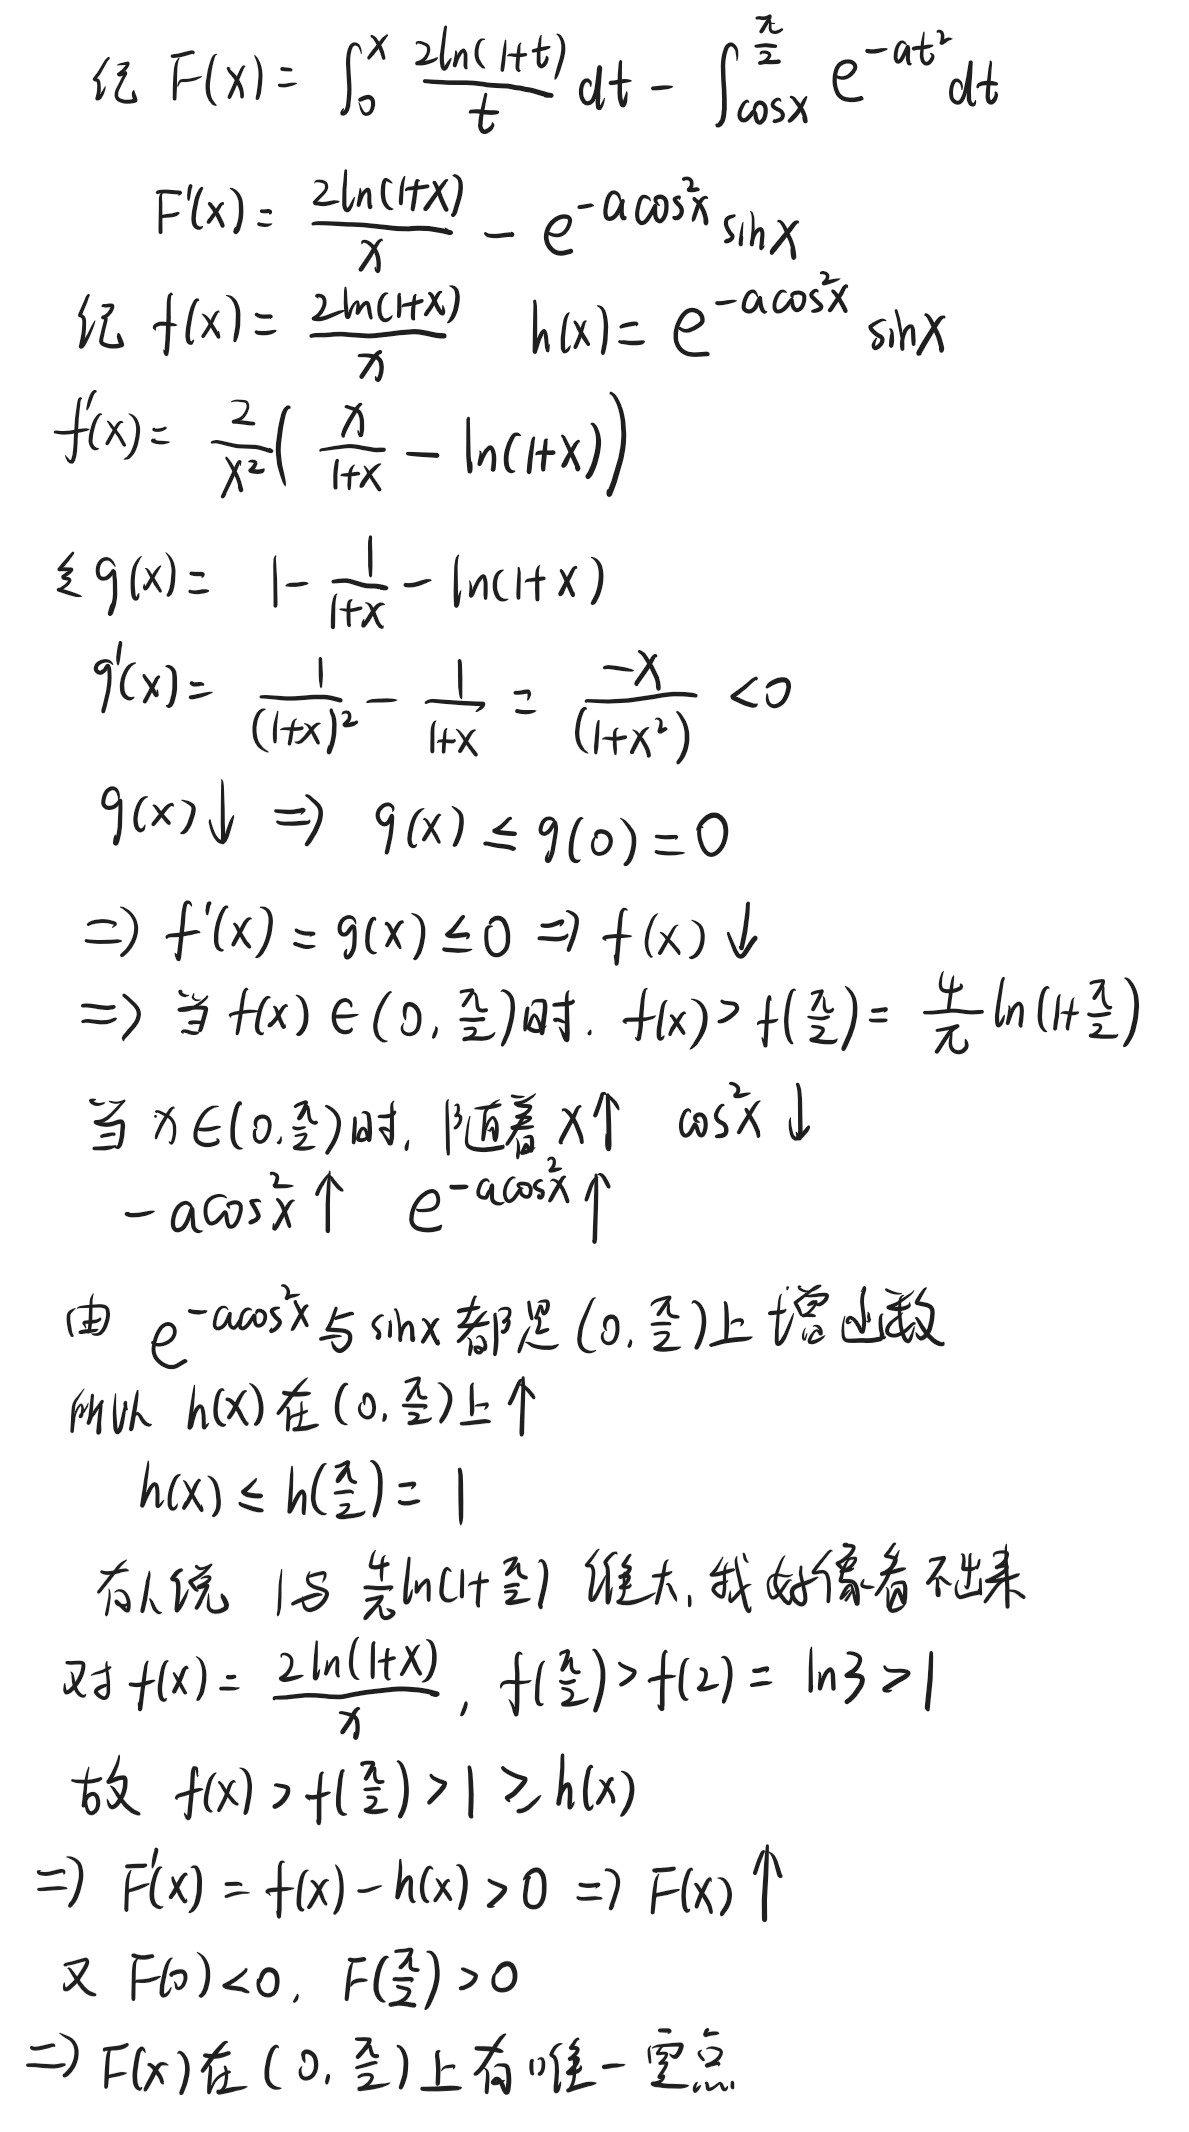 记 F(x) = ∫₀ˣ 2ln(1+t)/t dt - ∫_{cosx}^{π/2} e^{-at²} dt
F'(x) = 2ln(1+x)/x - e^{-acos²x} sinx
记 f(x) = 2ln(1+x)/x h(x) = e^{-acos²x} sinx
f'(x) = 2/x² ( x/(1+x) - ln(1+x) )
g(x) = 1 - 1/(1+x) - ln(1+x)
g'(x) = 1/(1+x)² - 1/(1+x) = -x/(1+x²) <0
g(x)↓ => g(x) ≤ g(0) = 0
=> f'(x) = g(x) ≤ 0 => f(x)↓
=> 当 f(x) ∈ (0, π/2)时. f(x) > f(π/2) = 4/π ln(1+π/2)
当 x∈(0, π/2)时, 随着 x↑ cos²x↓
-acos²x↑ e^{-acos²x}↑
由 e^{-acos²x} 与 sinx 都是 (0, π/2)上增函数
所以 h(x) 在 (0, π/2)上↑
h(x) ≤ h(π/2) = 1
有人说 1与 4/π ln(1+π/2) 谁大, 我好像看不出来
对于 f(x) = 2ln(1+x)/x , f(π/2) > f(2) = ln3 > 1
故 f(x) > f(π/2) > 1 ≥ h(x)
=> F'(x) = f(x) - h(x) > 0 => F(x)↑
又 F(0) < 0, F(π/2) > 0
=> F(x) 在 (0, π/2)上有唯一零点